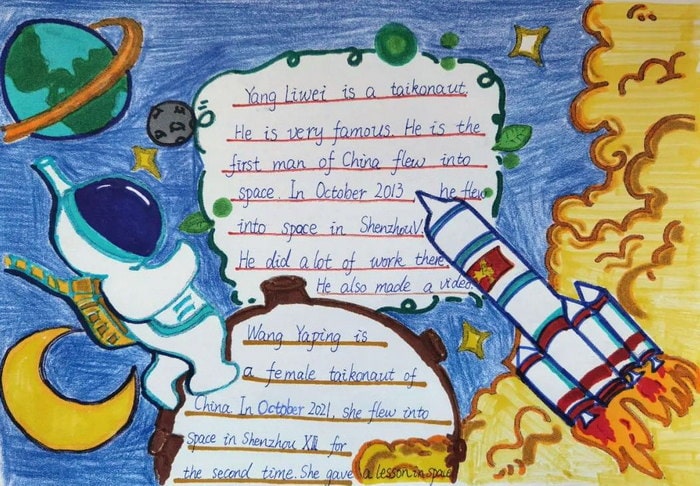 Yang Liwei is a taikonaut.
He is very famous. He is the
first man of China flew into
space. In October 2013, he flew
into space in Shenzhou V.
He did a lot of work there.
He also made a video.
Wang Yaping is
a female taikonaut of
China. In October 2021, she flew into
space in Shenzhou XIII for
the second time. She gave a lesson in space